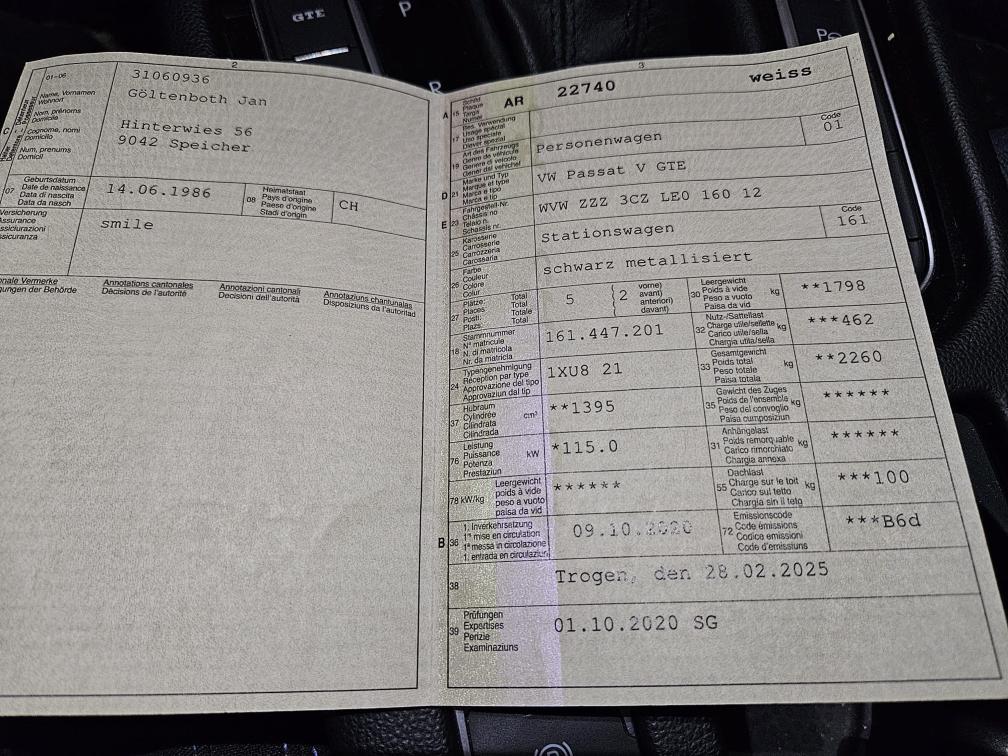 GTE
P
R
2
01-06
31060936
Name, Vornamen
Wohnort
Nom, prénoms
Domicile
Cognome, nomi
Domicilio
Num, prenums
Domicil
C
Göltenboth Jan
Hinterwies 56
9042 Speicher
07
Geburtsdatum
Date de naissance
Data di nascita
Data da nasch
14.06.1986
08
Heimatstaat
Pays d'origine
Paese d'origine
Stadi d'origin
CH
Versicherung
Assurance
Assicurazioni
smile
Annotations cantonales
Décisions de l'autorité
Annotazioni cantonali
Decisioni dell'autorità
Annotaziuns chantunalas
Disposiziuns da l'autoritad
3
A 15
Schild
Plaque
Targa
Numer
AR 22740 weiss
17
Bes. Verwendung
Usage spécial
Uso speciale
Diever spezial
19
Art des Fahrzeugs
Genre de véhicule
Genere di veicolo
Gener dal vehichel
Personenwagen
Code
01
D 21
Marke und Typ
Marque et type
Marca e tipo
Marca e tip
VW Passat V GTE
E 23
Fahrgestell-Nr.
Châssis no
Telaio n.
Schassis nr.
WVW ZZZ 3CZ LE0 160 12
25
Karosserie
Carrosserie
Carrozzeria
Carossaria
Stationswagen
Code
161
26
Farbe
Couleur
Colore
Colur
schwarz metallisiert
27
Plätze: Total
Places: Total
Posti: Totale
Plazs: Total
5
2
vorne)
avant)
anteriori)
davant)
30
Leergewicht
Poids à vide
Peso a vuoto
Paisa da vid
kg
**1798
18
Stammnummer
N° matricule
N. di matricola
Nr. da matricla
161.447.201
32
Nutz-/Sattellast
Charge utile/sellette
Carico utile/sella
Chargia utila/sella
kg
***462
24
Typengenehmigung
Réception par type
Approvazione del tipo
Approvaziun dal tip
1XU8 21
33
Gesamtgewicht
Poids total
Peso totale
Paisa totala
kg
**2260
37
Hubraum
Cylindrée
Cilindrata
Cilindrada
cm³
**1395
35
Gewicht des Zuges
Poids de l'ensemble
Peso del convoglio
Paisa cumposiziun
kg
******
76
Leistung
Puissance
Potenza
Prestaziun
kW
*115.0
31
Anhängelast
Poids remorquable
Carico rimorchiato
Chargia annexa
kg
******
78 kW/kg
Leergewicht
poids à vide
peso a vuoto
paisa da vid
******
55
Dachlast
Charge sur le toit
Carico sul tetto
Chargia sin il tetg
kg
***100
B 36
1. Inverkehrsetzung
1re mise en circulation
1a messa in circolazione
1. entrada en circulaziun
09.10.2020
72
Emissionscode
Code émissions
Codice emissioni
Code d'emissiuns
***B6d
38
Trogen, den 28.02.2025
39
Prüfungen
Expertises
Perizie
Examinaziuns
01.10.2020 SG